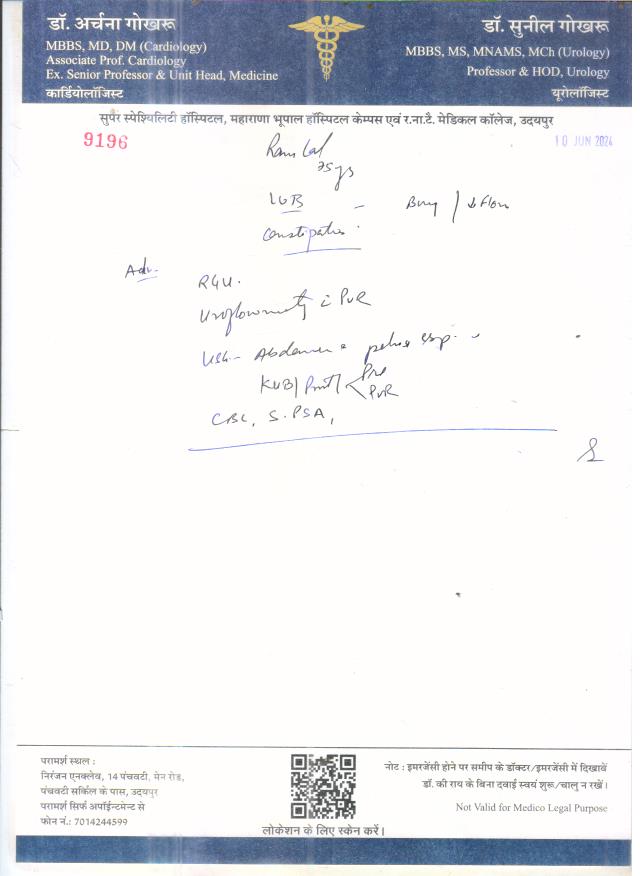 डॉ. अर्चना गोखरू
MBBS, MD, DM (Cardiology)
Associate Prof. Cardiology
Ex. Senior Professor & Unit Head, Medicine
कार्डियोलॉजिस्ट
डॉ. सुनील गोखरू
MBBS, MS, MNAMS, MCh (Urology)
Professor & HOD, Urology
यूरोलॉजिस्ट
सुपर स्पेश्यिलिटी हॉस्पिटल, महाराणा भूपाल हॉस्पिटल केम्पस एवं र.ना.टै. मेडिकल कॉलेज, उदयपुर
9196
10 JUN 2024
Ram Lal
75 yrs
- / ↓ Flow
Constipation.
Adv.
R4U.
Uroflowmetry c PVR
USG- Abdomen & pelvis
KUB/ Prost/ Pre
PVR
CBC, S. PSA,
परामर्श स्थल :
निरंजन एनक्लेव, 14 पंचवटी, मेन रोड,
पंचवटी सर्किल के पास, उदयपुर
परामर्श सिर्फ अपॉईन्टमेन्ट से
फोन नं.: 7014244599
लोकेशन के लिए स्केन करें।
नोट : इमरजेंसी होने पर समीप के डॉक्टर/इमरजेंसी में दिखावें
डॉ. की राय के बिना दवाई स्वयं शुरू/चालु न रखें।
Not Valid for Medico Legal Purpose